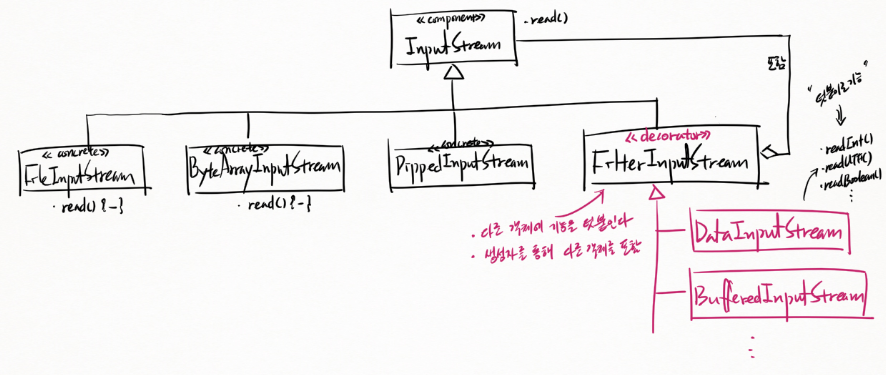 <<component>>
InputStream
· read()
포함
"덧붙이는 기능"
· readInt()
· readUTF()
· readBoolean()
⋮
<<concrete>>
FileInputStream
· read() {~}
<<concrete>>
ByteArrayInputStream
· read() {~}
<<concrete>>
PippedInputStream
<<decorator>>
FilterInputStream
· 다른 객체에 기능을 덧붙인다
· 생성자를 통해 다른 객체를 포함
DataInputStream
BufferedInputStream
⋮